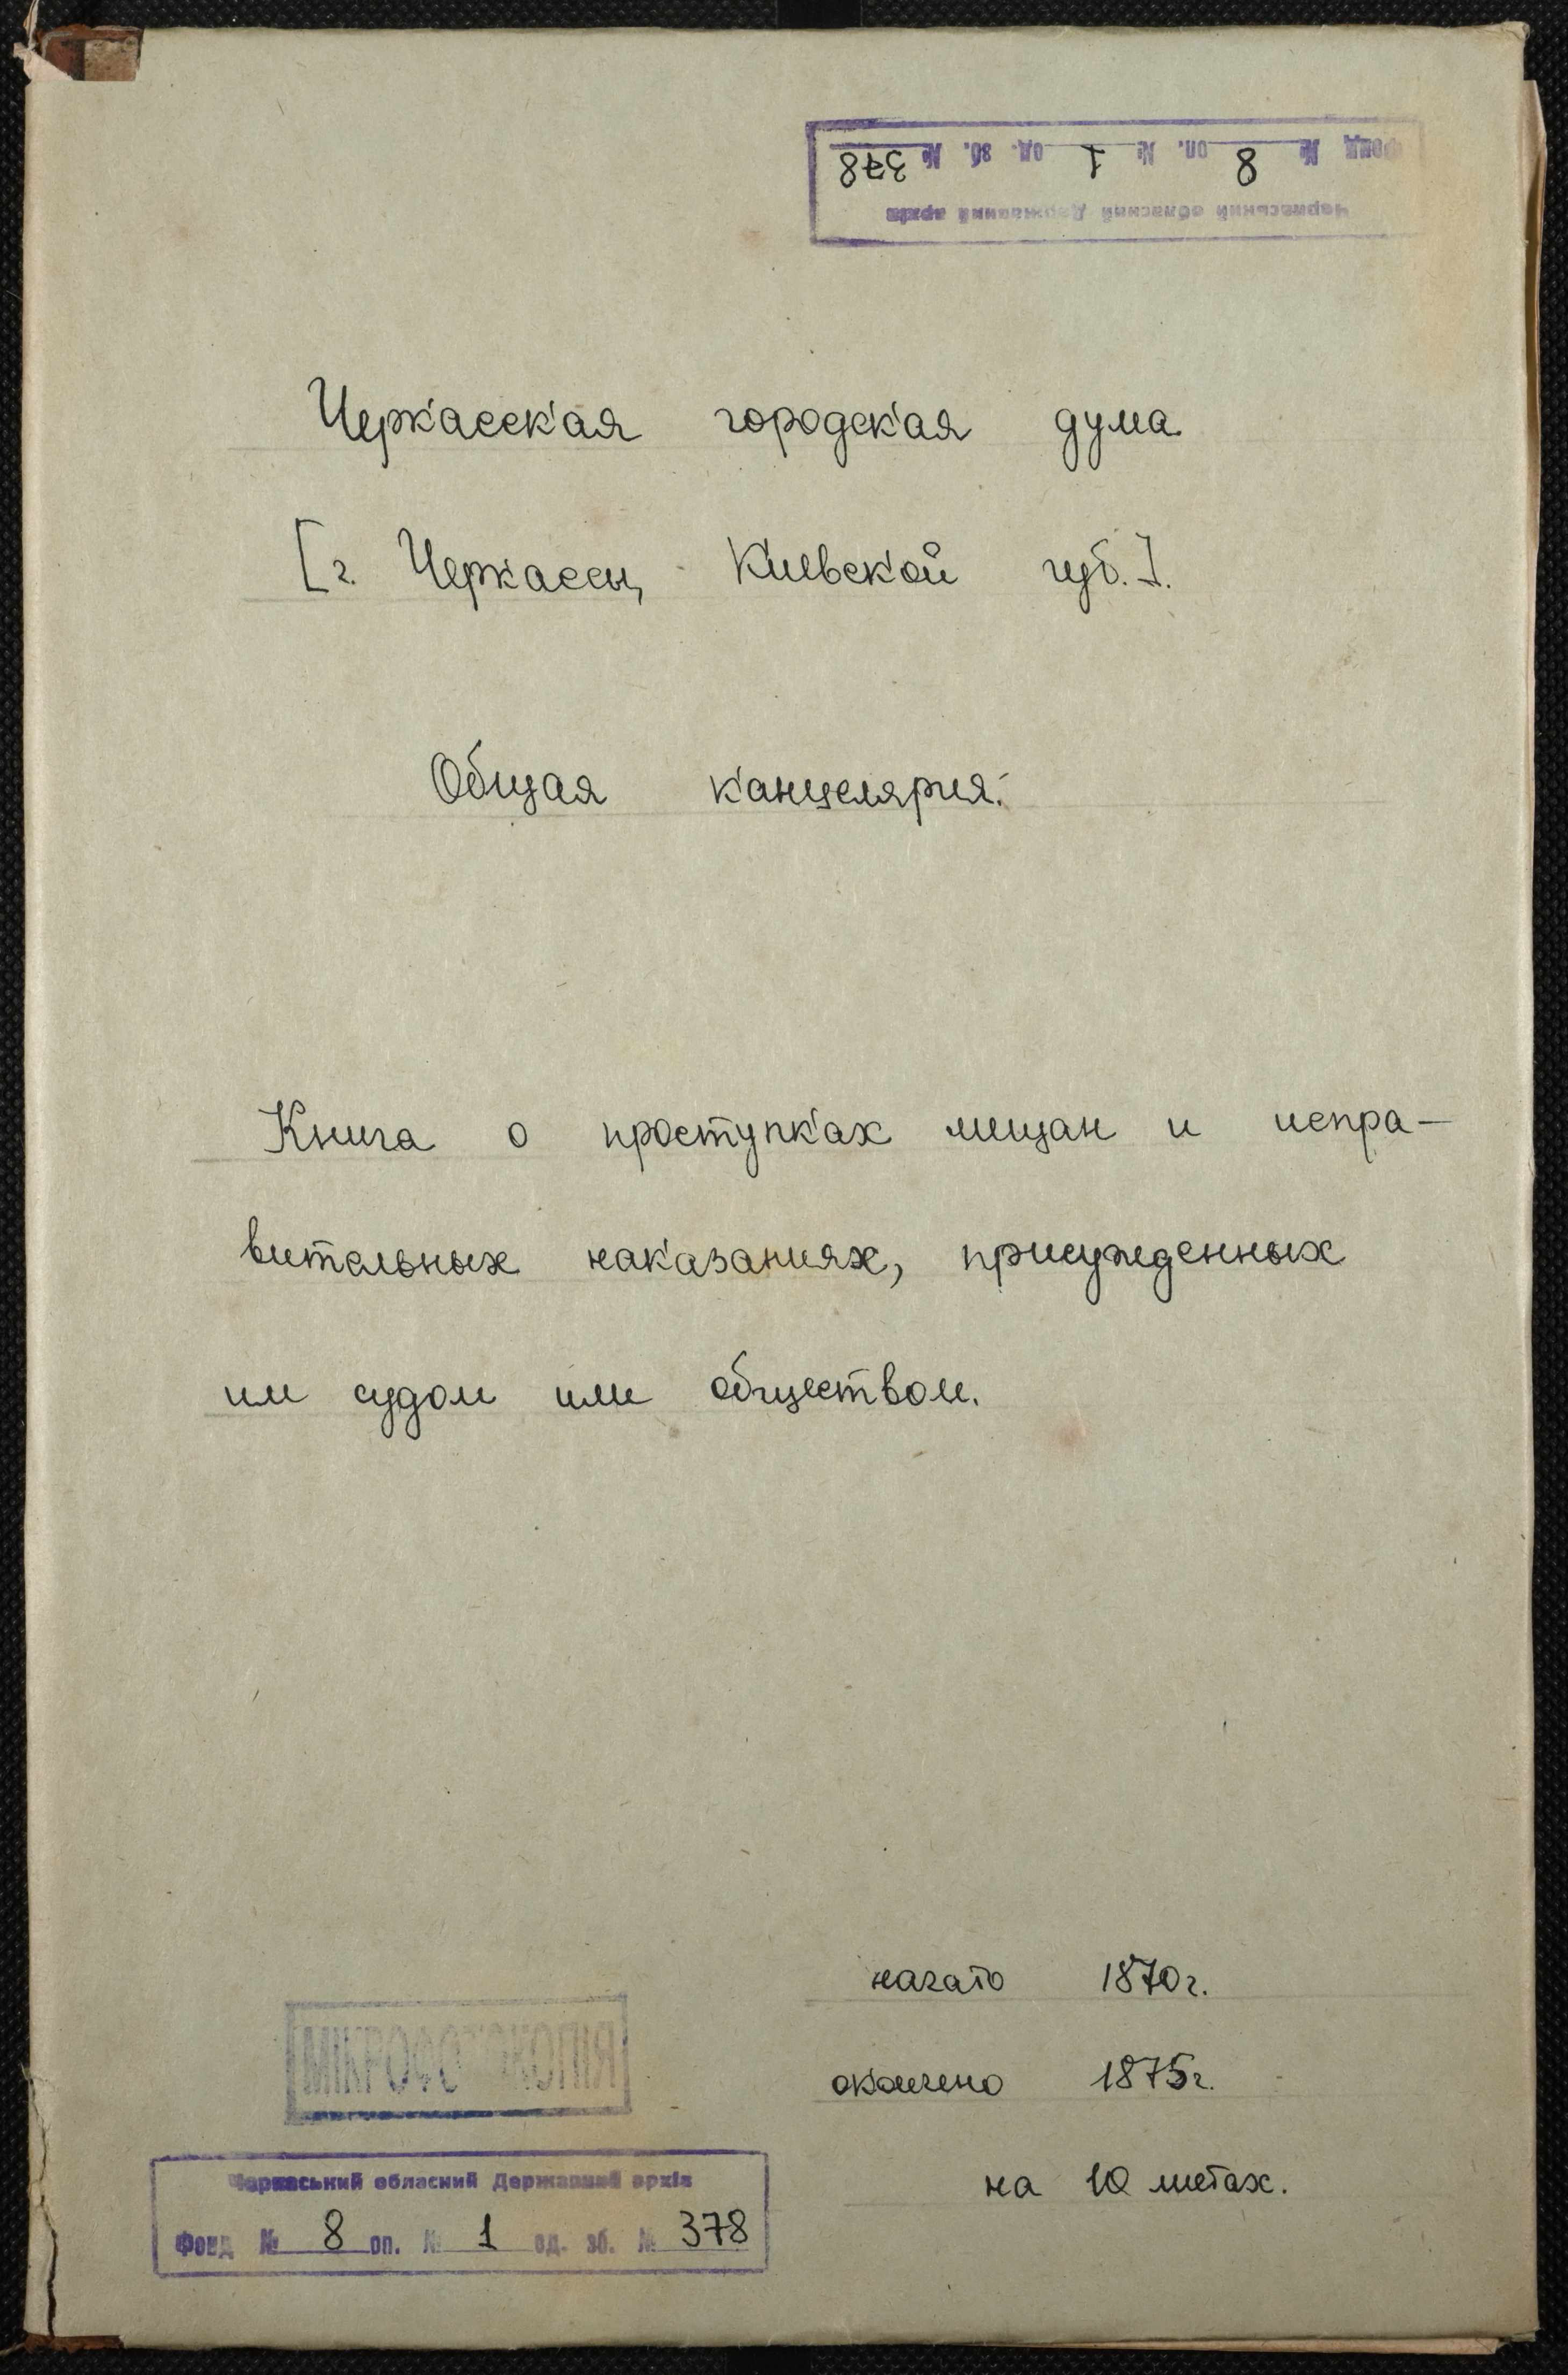 Фонд № 8 оп. № 1 од. зб. № 378
Черкаський обласний Державний архів
Черкасская городская дума
[г. Черкассы, Киевской губ.].
Общая канцелярия.
Книга о проступках мещан и испра-
вительных наказаниях, присужденных
им судом или обществом.
начато 1870 г.
окончено 1875 г.
на 10 листах.
МІКРОФОТОКОПІЯ
Черкаський обласний Державний архів
Фонд № 8 оп. № 1 од. зб. № 378